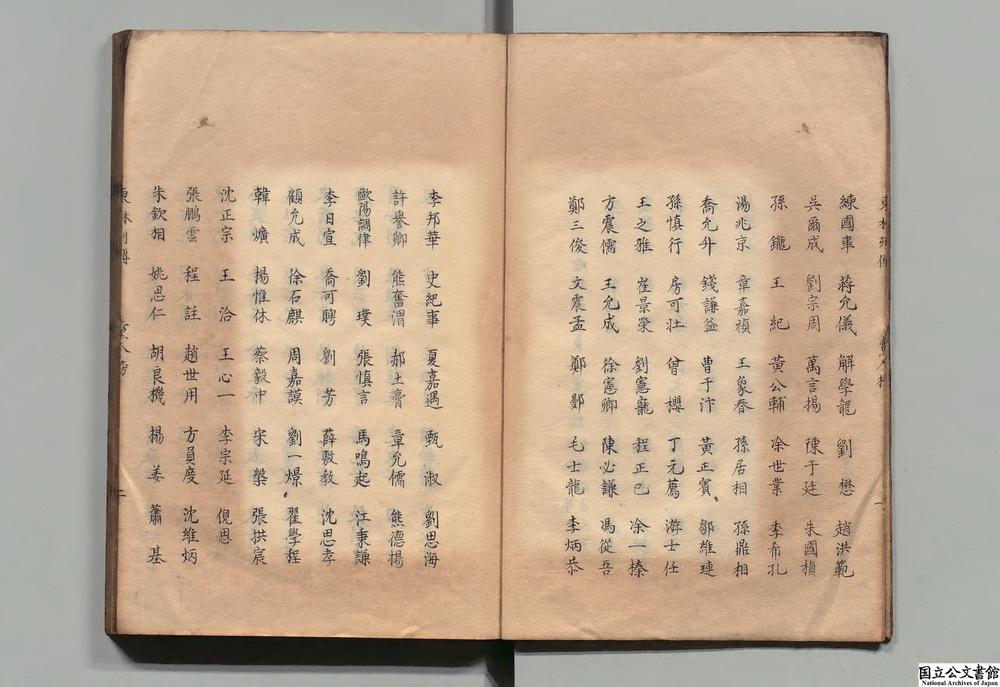 練國事 蔣允儀 解學龍 劉懋 趙洪範
吳爾成 劉宗周 萬言揚 陳于廷 朱國楨
孫鑨 王紀 黃公輔 凃世業 李希孔
湯兆京 章嘉禎 王象春 孫居相 孫鼎相
喬允升 錢謙益 曹于汴 黃正賓 鄒維璉
孫慎行 房可壯 曾櫻 丁元薦 游士任
王之雅 崔景榮 劉憲寵 程正巳 凃一榛
方震儒 王允成 徐憲卿 陳必謙 馮從吾
鄭三俊 文震孟 鄭鄤 毛士龍 李炳恭
一
李邦華 史紀事 夏嘉遇 甄淑 劉思海
許譽卿 熊奮渭 郝土膏 章允儒 熊德揚
歐陽調律 劉璞 張慎言 馬鳴起 江秉謙
李日宣 喬可聘 劉芳 薛敷教 沈思孝
顧允成 徐石麒 周嘉謨 劉一燝 翟學程
韓爌 揚惟休 蔡毅中 宋槃 張拱宸
沈正宗 王洽 王心一 李宗延 倪思
張鵬雲 程註 趙世用 方員度 沈維炳
朱欽相 姚思仁 胡良機 揚姜 蕭基
二
国立公文書館
National Archives of Japan